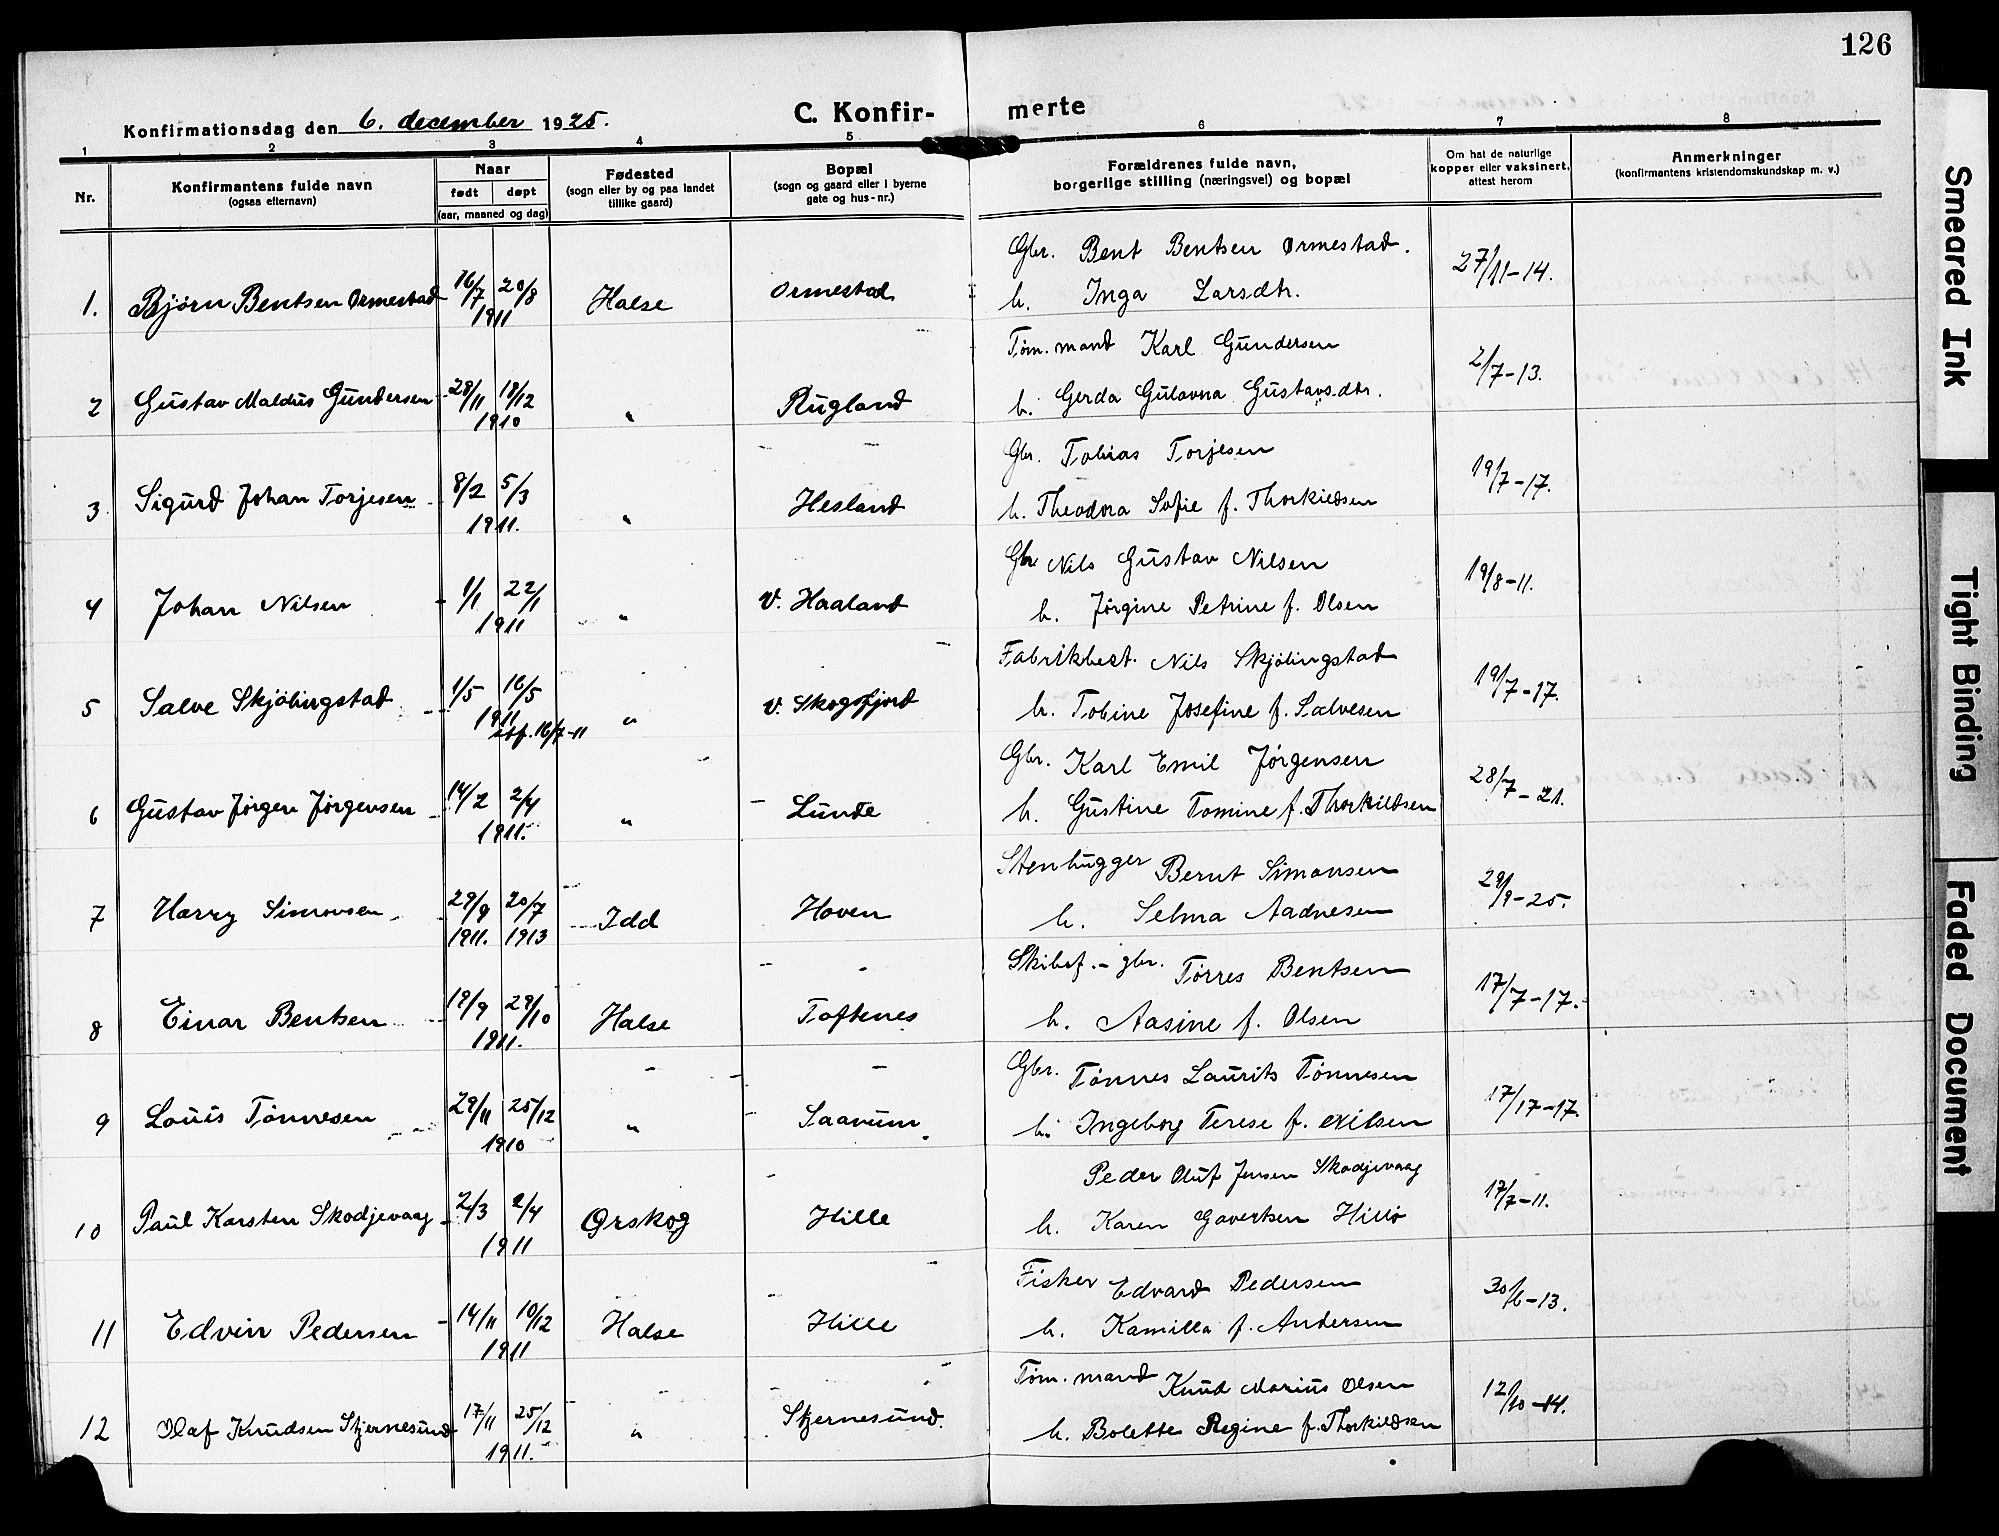 126
Konfirmationsdag den 6. december 1925.
C. Konfir- merte
1 2 3 4 5 6 7 8
Nr.
Konfirmantens fulde navn
(ogsaa efternavn)
Naar
født døpt
(aar, maaned og dag)
Fødested
(sogn eller by og paa landet
tillike gaard)
Bopæl
(sogn og gaard eller i byerne
gate og hus-nr.)
Forældrenes fulde navn,
borgerlige stilling (næringsvei) og bopæl
Om hat de naturlige
kopper eller vaksinert,
attest herom
Anmerkninger
(konfirmantens kristendomskundskap m. v.)
1. Bjørn Bentsen Ormestad 16/7 20/8 1911 Halse Ormestad Gbr. Bent Bentsen Ormestad. 27/11-14.
h. Inga Larsdtr.
2 Gustav Maldus Gundersen 28/11 18/12 1910 " Rugland Tøm.mand Karl Gundersen 2/7-13.
h. Gerda Gulovna Gustavs.dtr.
3 Sigurd Johan Torjesen 8/2 5/3 1911. " Hesland Gbr. Tobias Torjesen 19/7-17.
h. Theodora Sofie f. Thorkildsen
4 Johan Nilsen 1/1 22/1 1911 " v. Haaland Gbr Nils Gustav Nilsen 19/8-11.
h. Jørgine Petrine f. Olsen
5 Salve Skjølingstad 1/5 16/5 1911 stf. 16/7-11 " v. Skogsfjord Fabrikbest. Nils Skjølingstad 19/7-17.
h. Tobine Josefine f. Salvesen
6 Gustav Jørgen Jørgensen 14/2 2/4 1911. " Lunde Gbr. Karl Emil Jørgensen 28/7-21.
h. Gustine Tomine f. Thorkildsen
7 Harry Simonsen 29/9 1911. 20/7 1913 Idd Hoven Stenhugger Bernt Simonsen 29/9-25.
h. Selma Aadnesen
8 Einar Bentsen 19/9 29/10 1911. Halse Toftenes Skibsf.-gbr. Tørres Bentsen 17/7-17.
h. Aasine f. Olsen
9 Louis Tønnesen 29/11 25/12 1910 " Saanum Gbr. Tønnes Laurits Tønnesen 17/17-17.
h. Ingeborg Terese f. Nilsen
10 Paul Karsten Skodjevaag 2/3 2/4 1911 Ørskog Hille Peder Oluf Jensen Skodjevaag 17/7-11.
h. Karen Govertsen Hille
11 Edvin Pedersen 14/11 10/12 1911 Halse Hille Fisker Edvard Pedersen 30/6-13.
h. Kamilla f. Andersen
12 Olaf Knudsen Stjernesund 17/11 25/12 1911. " Stjernesund. Tøm.mand Knud Marius Olsen 12/10-14.
h. Bolette Regine f. Thorkildsen
Smeared Ink
Tight Binding
Faded Document